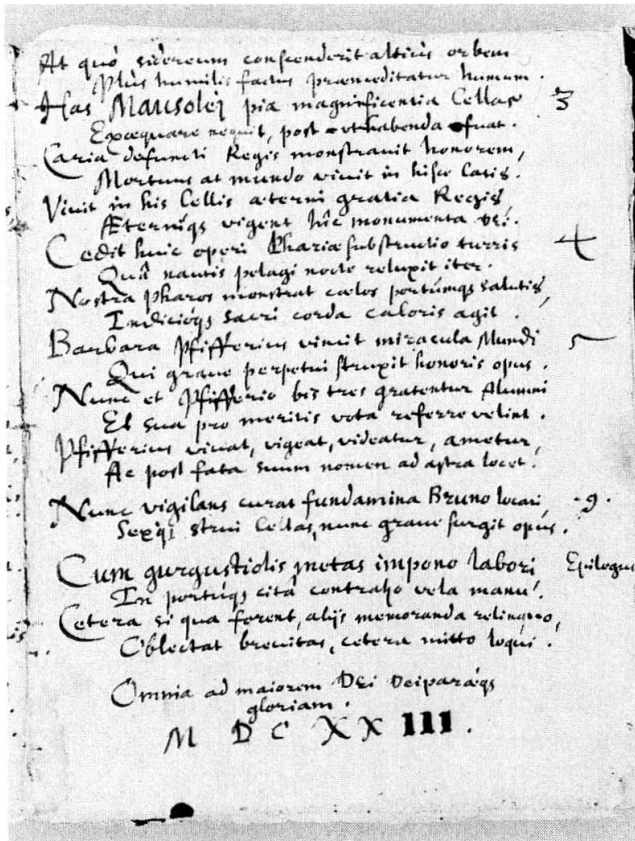 At quò sidereum conscenderit altiùs orbem
Plùs humilis factus præmeditatur humum.
Has Mausolej pia magnificentia Cellas 3
Exæquare nequit, post habenda fuat.
Caria defuncti Regis monstravit honorem,
Mortuus at mundo vivit in hisce Casis.
Vivit in his Cellis æterni gratia Regis,
Æterniq́s vigent hîc monumenta Dei.
Cedit huic operi Phariæ substructio turris 4
Quâ nautis pelagi nocte reluxit iter.
Nostra Pharos monstrat cælos portúmqs salutis,
Indicióq́s sacri corda caloris agit.
Barbara Pfifferius vincit miracula Mundi 5
Qui grave perpetui struxit honoris opus.
Nunc et Pfifferio bis tres gratentur Alumni
Et sua pro meritis vota referre velint.
Pfifferius vivat, vigeat, videatur, ametur,
Ac post fata suum nomen ad astra locet.
Nunc vigilans curat fundamina Bruno locari .9.
Sexq́i strui Cellas, nunc grave surgit opus.
Cum gurgustiolis metas impono labori Epilogus
In portúqs citâ contraho vela manu.
Cetera si qua ferent, alijs memoranda relinquo,
Oblectat brevitas, cetera mitto loqui.
Omnia ad maiorem DEi Deiparæq́s
gloriam.
M D C XX III.